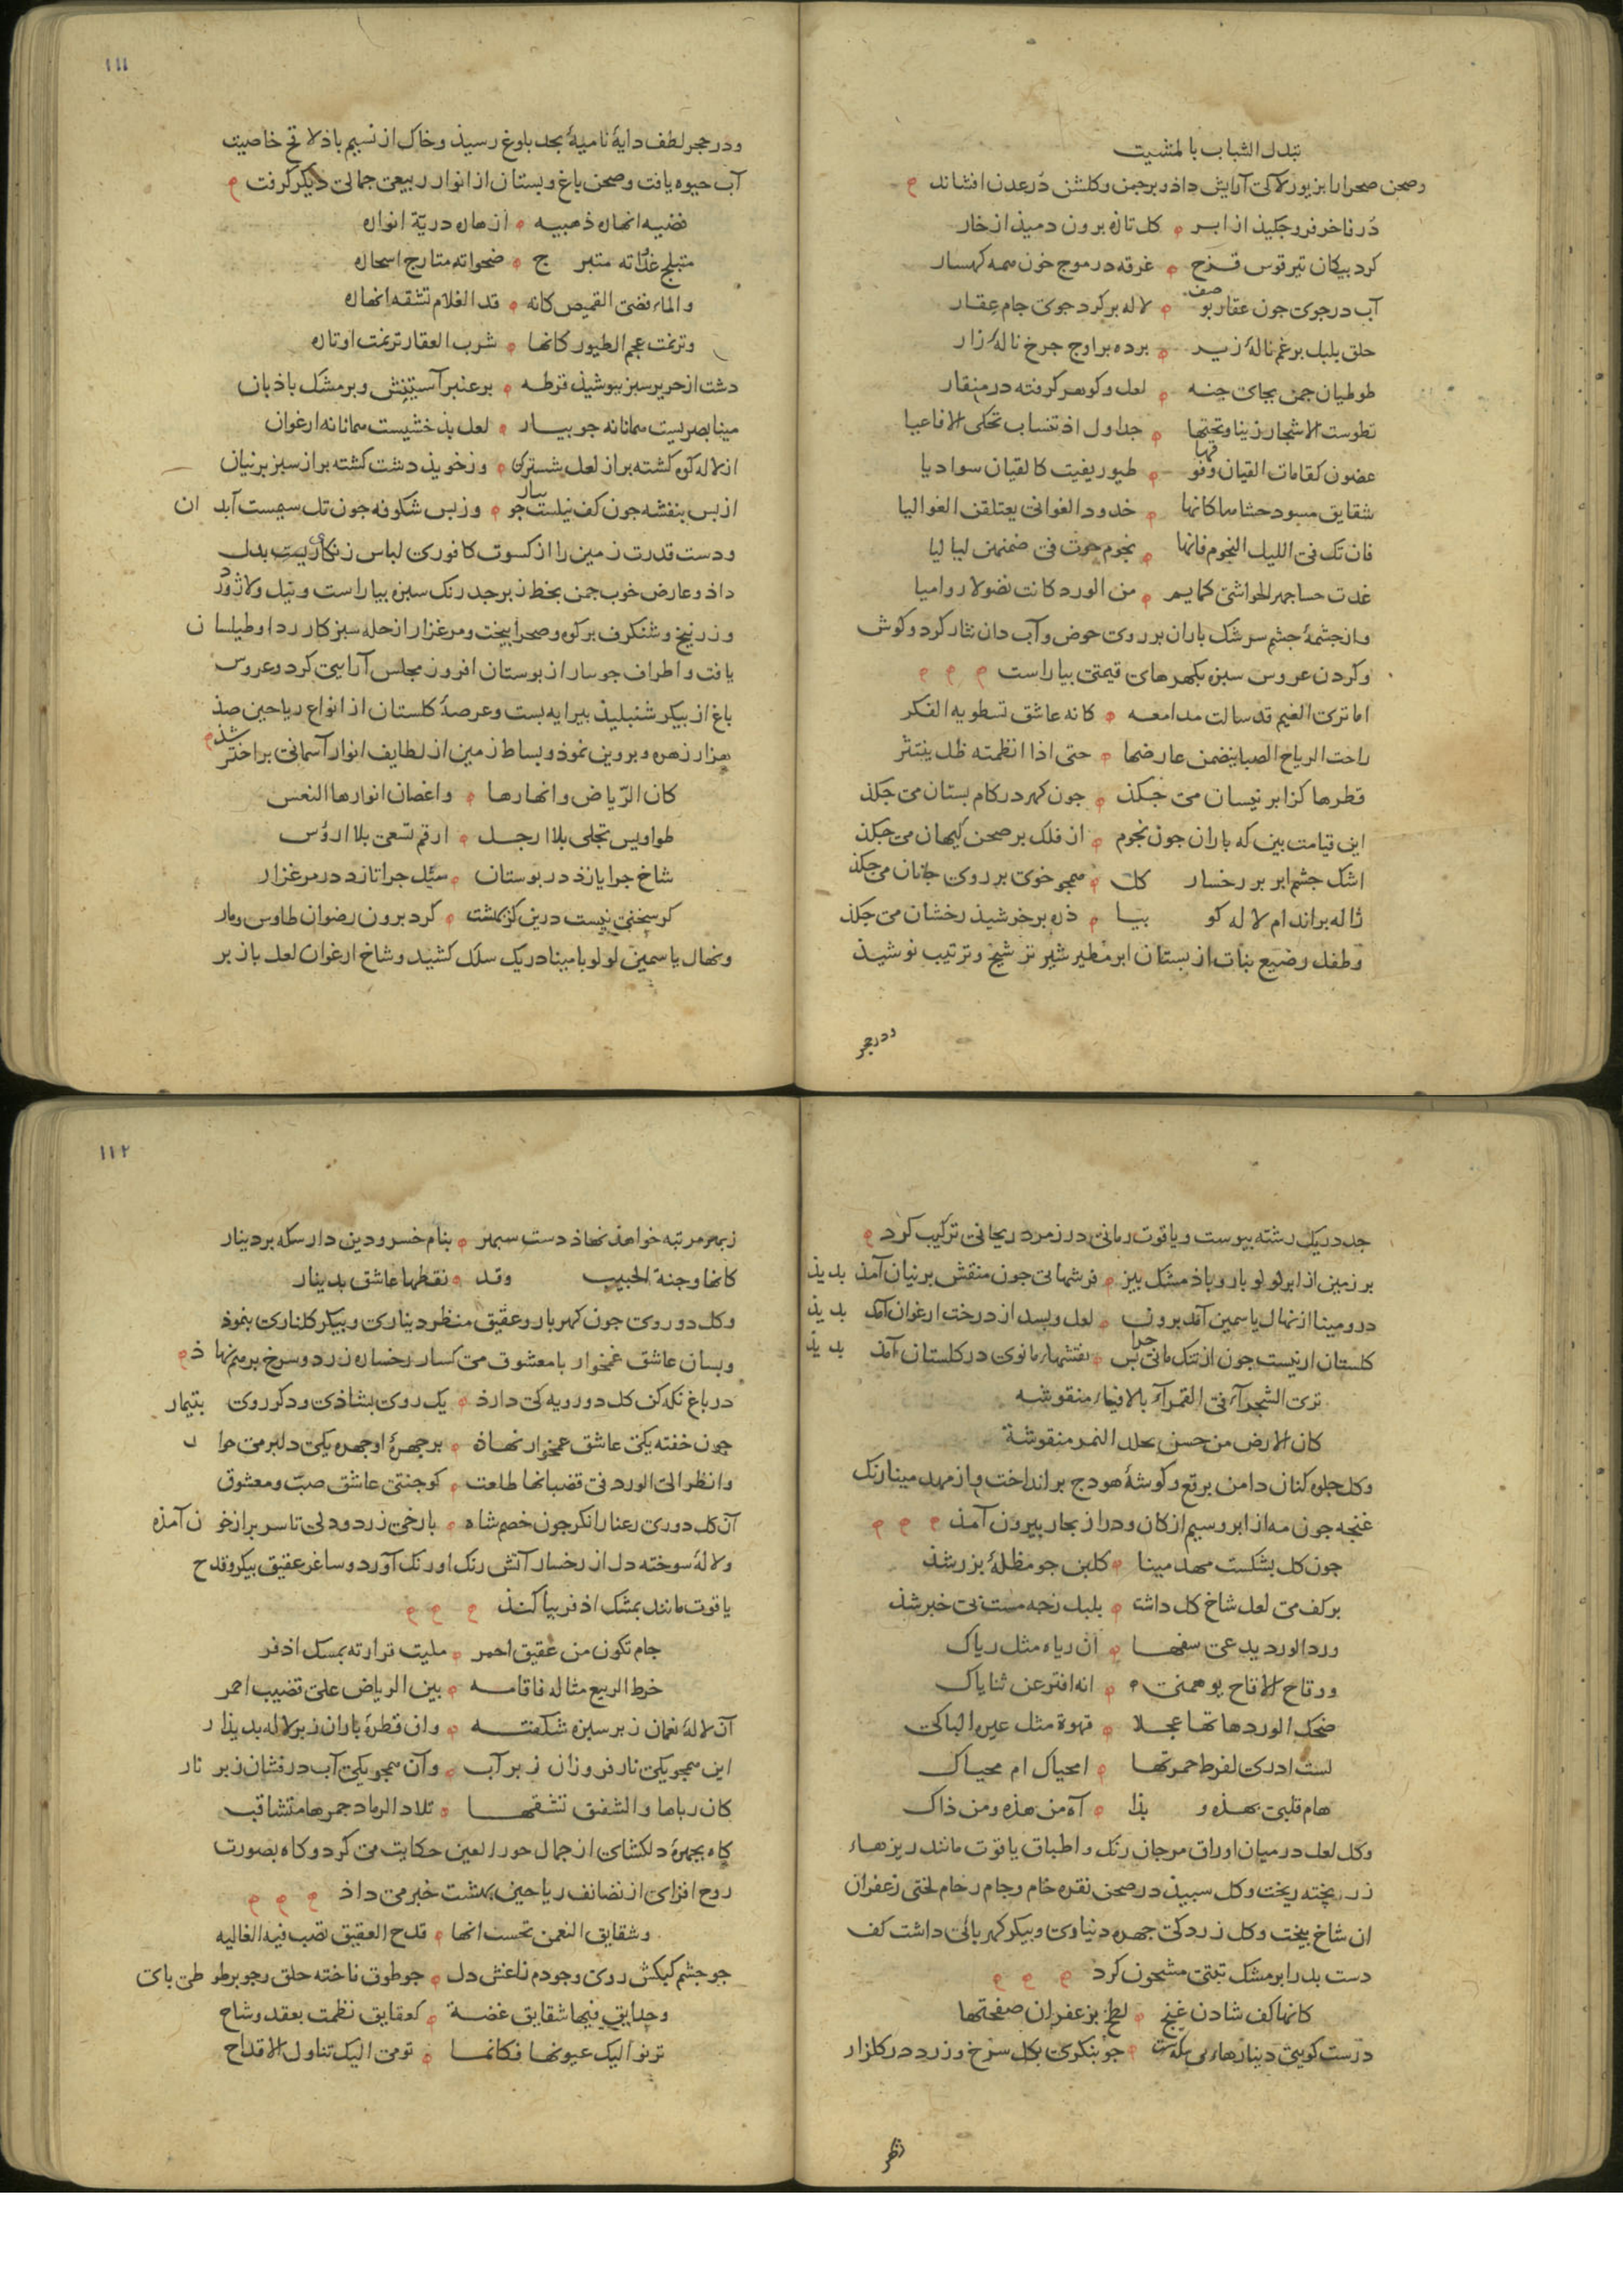 تبدل الشباب بالمشیب
وصحن صحرا را بزیور لالی آرایش داذ و بر چمن و کلشن دُر عدن افشاند
دُر ناخر فرو چکیذ از ابر کل تازه برون دمیذ از خار
کرد پیکان تیر قوس قزح غرقه در موج خون همه کهسار
آب در جوی جون عقار بو صف لاله بر کرد جوی جام عقار
حلق بلبل برغم نالهٔ زیر برده بر اوج جرخ نالهٔ زار
طوطیان جمن بجای جنه لعل و کوهر کرفته در منقار
تطوست الاشجار زینا و تحتها جداول اذ تنساب تحکی الافاعیا
غصون کقامات القیان وفوقها طیور یغنیت کالقیان سوادیا
شقایق مسود حشاها کانها خدود الغوانی یعتلقن الغوالیا
فان تک فی اللیل النجوم فانها نجوم حوت فی ضمنهن لیالیا
غدت حساجمر الحواشی کمایم من الورد کانت نضولا روامیا
وان جشمهٔ جشم سرشک باران بر روی حوض و آب دان نثار کرد و کوش
و کردن عروس سبزه بکهرهای قیمتی بیاراست
اما تری الغیم قد سالت مدامعه کانه عاشق تسطو به الفکر
راحت الریاح الصبا ینضمن عارضها حتی اذا انظمته ظل ینتثر
قطرها کز ابر نیسان می جکذ جون کهر در کام بستان می جکذ
این قیامت بین که باران جون نجوم از فلک بر صحن کیهان می جکذ
اشک جشم ابر بر رخسار کل همجو خوی بر روی جانان می جکذ
ژاله بر اندام لاله کو بیا ذره بر خرشیذ رخشان می جکذ
و طفل رضیع نبات از پستان ابر مطیر شیر ترشیخ و ترتیب نوشیذ
ودر حجر
١١١
ودر حجر لطف دایهٔ نامیهٔ بحد بلوغ رسیذ و خاک از نسیم باذ لاقح خاصیت
آب حیوه یافت و صحن باغ و بستان از انوار ربیعی جمالی دیگر کرفت
فضیه انهاره ذهبیه ازهاره دریّة انواره
متبلج غداته متبرج ضحواته متارج اسحاره
والماء نضی القمیص کانه قد الغلام تشقه انهاره
وترنمت عجم الطیور کانها شرب العقار ترنمت اوتاره
دشت از حریر سبز بپوشیذ قرطه بر عنبر آستینش و بر مشک باذبان
مینا بصریست همانا نه جویبار لعل بذخشیست همانا نه ارغوان
از لاله کوه کشته بر از لعل ششتری وز خویذ دشت کشته بر از سبز برنیان
از بس بنفشه جون کف نیلست جویبار وز بس شکوفه جون تل سیمست آبدان
و دست قدرت زمین را از کسوت کافوری لباس زنکاریست بدل
داذ و عارض خوب جمن بخط زبرجد رنک سبزه بیاراست و نیل و لاژورد
و زرنیخ و شنکرف بر کوه و صحرا بیخت و مرغزار از حله سبز کار ردا و طیلسان
یافت و اطراف جوبار از بوستان افروز مجلس آرایی کرد و عروس
باغ از بیکر شنبلیذ بیرایه بست و عرصهٔ کلستان از انواع ریاحین صذ
هزار زهره و بروین نموذ و بساط زمین از لطایف انوار آسمانی بر اختر شذ
کان الرّیاض و انهارها و اغصان انوارها النعس
طواویس تجلی بلا ارجل ارقم تسعی بلا اارؤس
شاخ جرا یازذ در بوستان سیٔل جرا تازد در مرغزار
کر سخنی نیست درین کز بهشت کرد برون رضوان طاوس و مار
ونهال یاسمین لولو با مینا در یک سلک کشید و شاخ ارغوان لعل باز بر
جد در یک رشته بیوست و یاقوت رمانی در زمرد ریحانی ترکیب کرد
بر زمین از ابر لولو بار و باذ مشک بیز فرشهائی جون منقش برنیان آمذ بدیذ
در و مینا از نهال یاسمین آمد برون لعل و بسد از درخت ارغوان آمد بدیذ
کلستان ار نیست جون ارتنک مانی بس جرا نقشهاء مانوی در کلستان آمد بدیذ
تری الشجرآء فی القمرآء بالافیاء منقوشه
کان الارض من حسن بجلد النمر منقوشة
وکل جلوه کنان دامن برقع و کوشهٔ هودج بر انداخت و از مهد مینا رنک
غنجه جون مه از ابر و سیم از کان و در از بحار بیرون آمذ
جون کل بشکست مهد مینا کلبن جو مظلهٔ بزر شذ
بر کف می لعل شاخ کل داشت بلبل زجه مست بی خبر شذ
ورد الورد یدعی سفها ان ریاه مثل ریاک
ورقاح الاقاح یوهمنی انه افتر عن ثنایاک
ضحک الورد هاتها عجلا قهوة مثل عین الباکی
لست ادری لفرط حمرتها امحیاک ام محیاک
هام قلبی بهذه و بذا آه من هذه ومن ذاک
وکل لعل در میان اوراق مرجان رنک و اطباق یاقوت مانند ریزهاء
زر بخته ریخت و کل سبیذ در صحن نقره خام و جام رخام لختی زعفران
ان شاخ بیخت و کل زرد کی جهره دیناوی و بیکر کهربائی داشت کف
دست بلد را بر مشک تبتی مشحون کرد
کانها کف شادن غنج لطخ بزعفران صفحتها
درست کویی دینارهاء بی سکه است جو بنکری بکل سرخ و زرد در کلزار
زمهر
١١٢
زبهر مرتبه خواهذ نهاذ دست سبهر بنام خسرو دین دار سکه بر دینار
کانها وجنة الحبیب وقد نقطها عاشق بدینار
وکل دو روی جون کهربار و عقیق منظر دیناری و بیکر کلناری بنموذ
وبسان عاشق غمخوار با معشوق می کسار رخساره زرد و سرخ بر هم نهاذ
در باغ نکه کن کل دو رویه کی دارذ یک روی بشاذی و دکر روی بتیمار
جون خفته یکی عاشق غمخوار نهاذه بر جهرهٔ او جهره یکی دلبر می خوار
وانظر الی الورد فی قضبانها طلعت کوجنتی عاشق صبّ و معشوق
آن کل دوری رعنا را نکر جون خصم شاه با رخی زرد و دلی تا سر بر از خون آمذه
و لالهٔ سوخته دل از رخسار آتش رنک اورنک آورد و ساغر عقیق بیکر و قدح
یاقوت مانند بمشک اذفر بیاکنذ
جام تکون من عقیق احمر ملیت قرارته بمسک اذفر
خرط الربیع مثاله فاقامه بین الریاض علی قضیب احمر
آن لالهٔ نعمان زبر سبزه شکفته وان قطرهٔ باران زبر لاله بدیذار
این همجو یکی نار فروزان زبر آب وآن همجو یکی آب درفشان زبر نار
کان رباها والشفق تشقها تلاد الرماد جمرها متشاقب
کاه بجهرهٔ دلکشای از جمال حورالعین حکایت می کرد و کاه بصورت
روح افزای از نضائف ریاحین بهشت خبر می داذ
وشقایق النعمن تحسب انها قدح العقیق تصب فیه الغالیه
جو جشم کبکش روی و جو دم زاغش دل جو طوق فاخته حلق و جو بر طوطی بای
وحدایق فیها شقایق غضة کعقایق نظمت بعقد وشاح
ترنو الیک عیونها فکانما تومی الیک تناول الاقداح